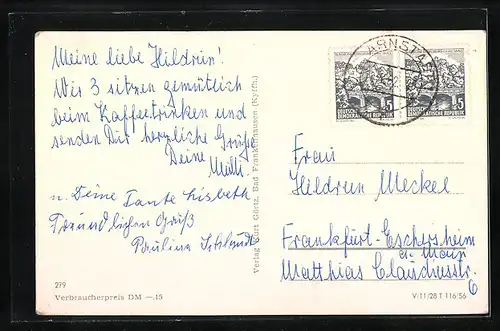 Meine liebe Hildrun!
Wir 3 sitzen gemütlich
beim Kaffeetrinken und
senden Dir herzliche Grüße
Deine
u. Deine Tante Lisbeth
Freundlichen Gruß
Paulina
279
Verbraucherpreis DM —.15
Verlag Kurt Görtz, Bad Frankenhausen (Kyffh.)
ARNSTADT
15
15
DEUTSCHE
DEMOKRATISCHE REPUBLIK
DEMOKRATISCHE REPUBLIK
Frau
Hildrun Meckel
Frankfurt-Eschersheim
a Main
Matthias Claudiusstr.
6
V/11/28 T 116/56